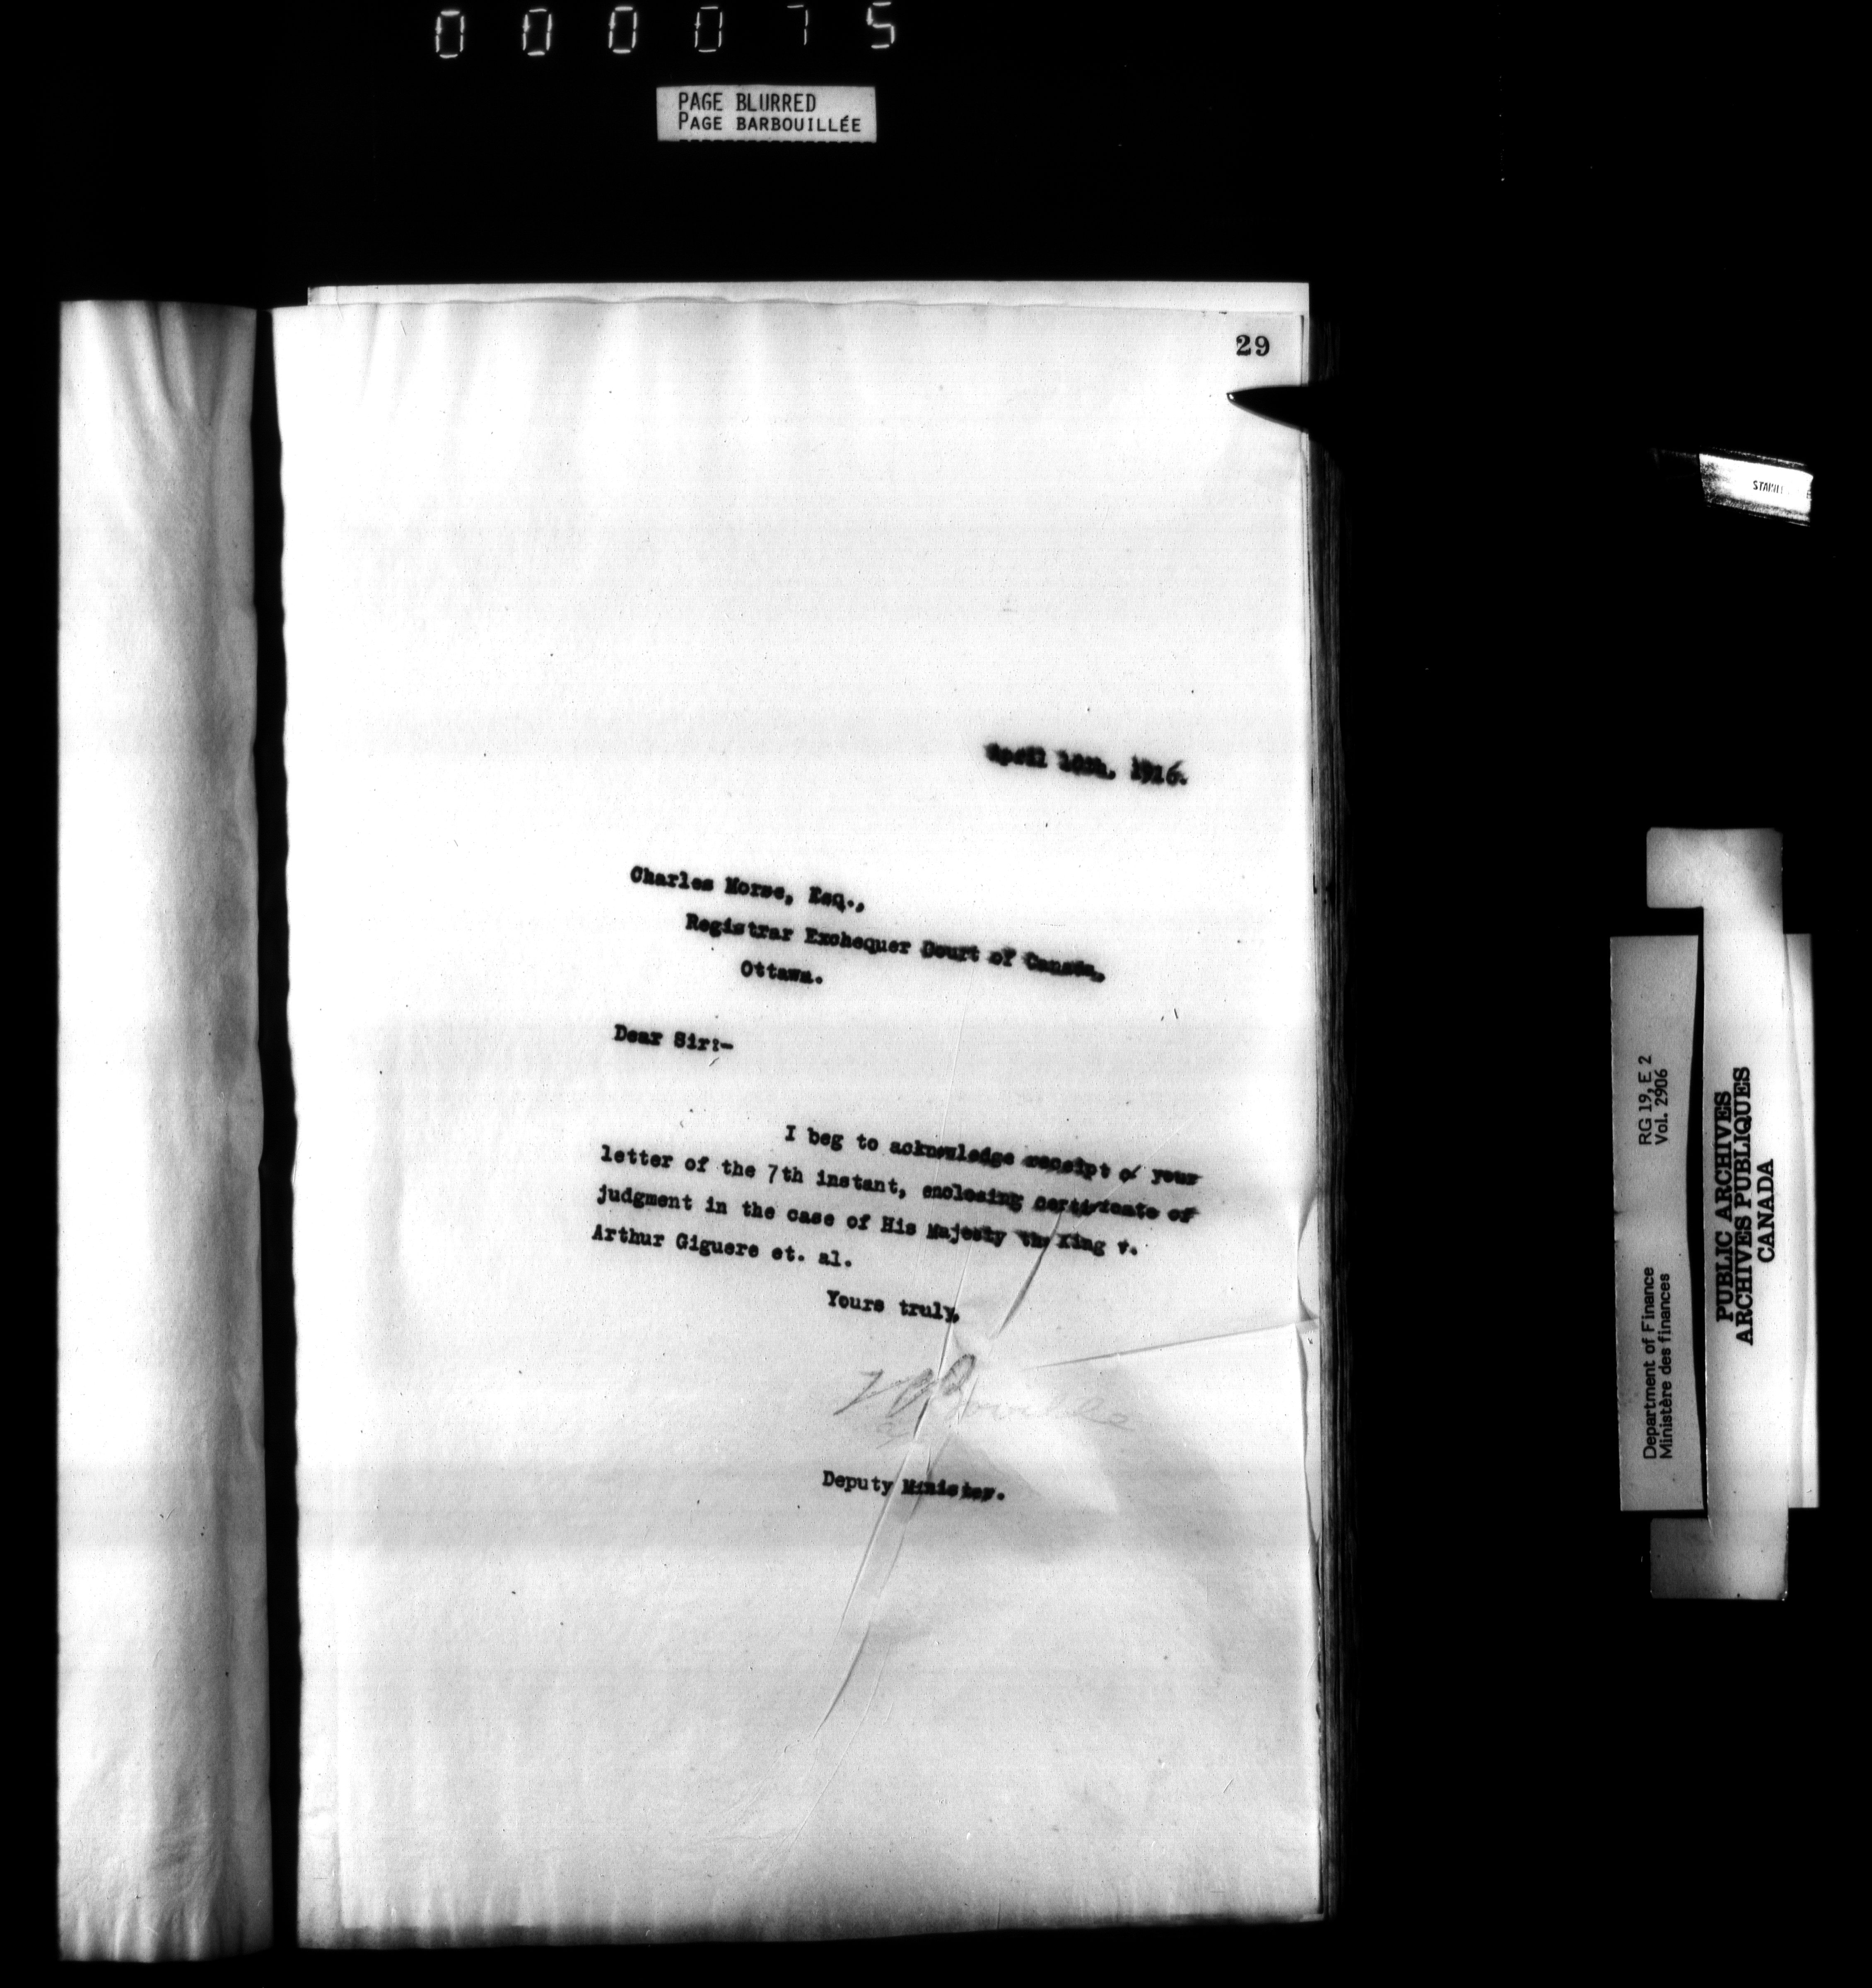 000075
PAGE BLURRED
PAGE BARBOUILLÉE
29
April 10th, 1916.
Charles Morse, Esq.,
Registrar Exchequer Court of Canada,
Ottawa.
Dear Sir:-
I beg to acknowledge receipt of your
letter of the 7th instant, enclosing certificate of
judgment in the case of His Majesty the King v.
Arthur Giguere et. al.
Yours truly,
Deputy Minister.
Department of Finance RG 19, E 2
Ministère des finances Vol. 2906
PUBLIC ARCHIVES
ARCHIVES PUBLIQUES
CANADA